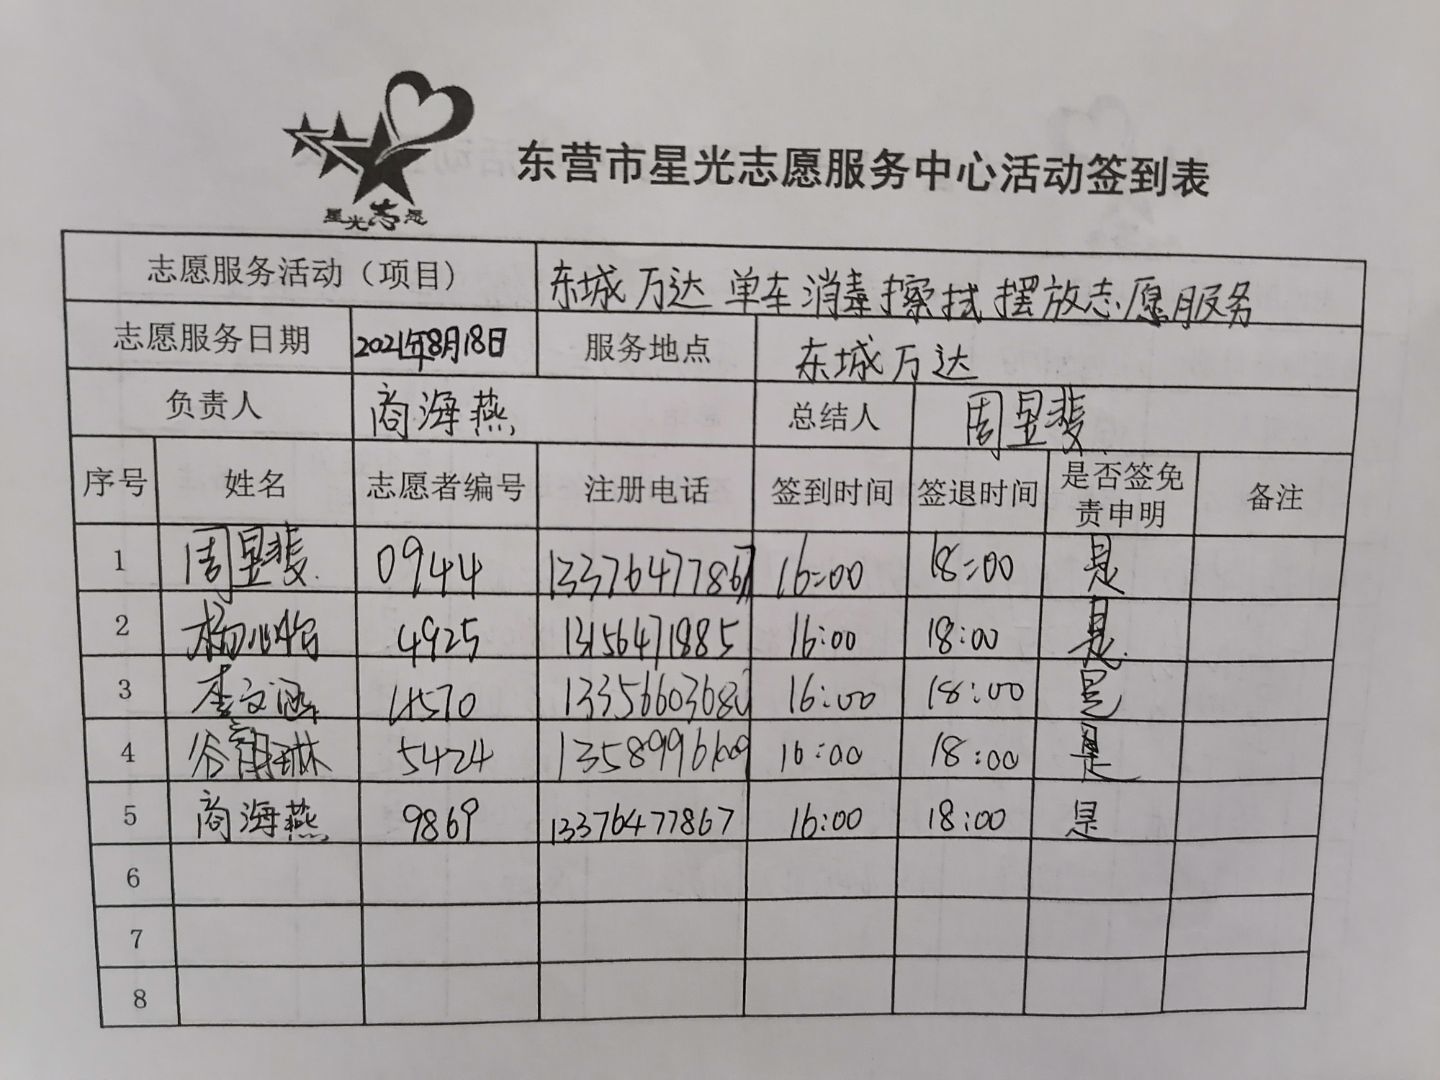 星光志愿
东营市星光志愿服务中心活动签到表
志愿服务活动（项目） 东城万达单车消毒擦拭摆放志愿服务
志愿服务日期 2021年8月18日 服务地点 东城万达
负责人 商海燕 总结人 周昱斐
序号 姓名 志愿者编号 注册电话 签到时间 签退时间 是否签免责申明 备注
1 周昱斐 0944 13376477867 16:00 18:00 是
2 杨心怡 4925 13156471885 16:00 18:00 是
3 李文涵 4570 1335660368 16:00 18:00 是
4 5424 16:00 18:00 是
5 商海燕 9869 13376477867 16:00 18:00 是
6
7
8